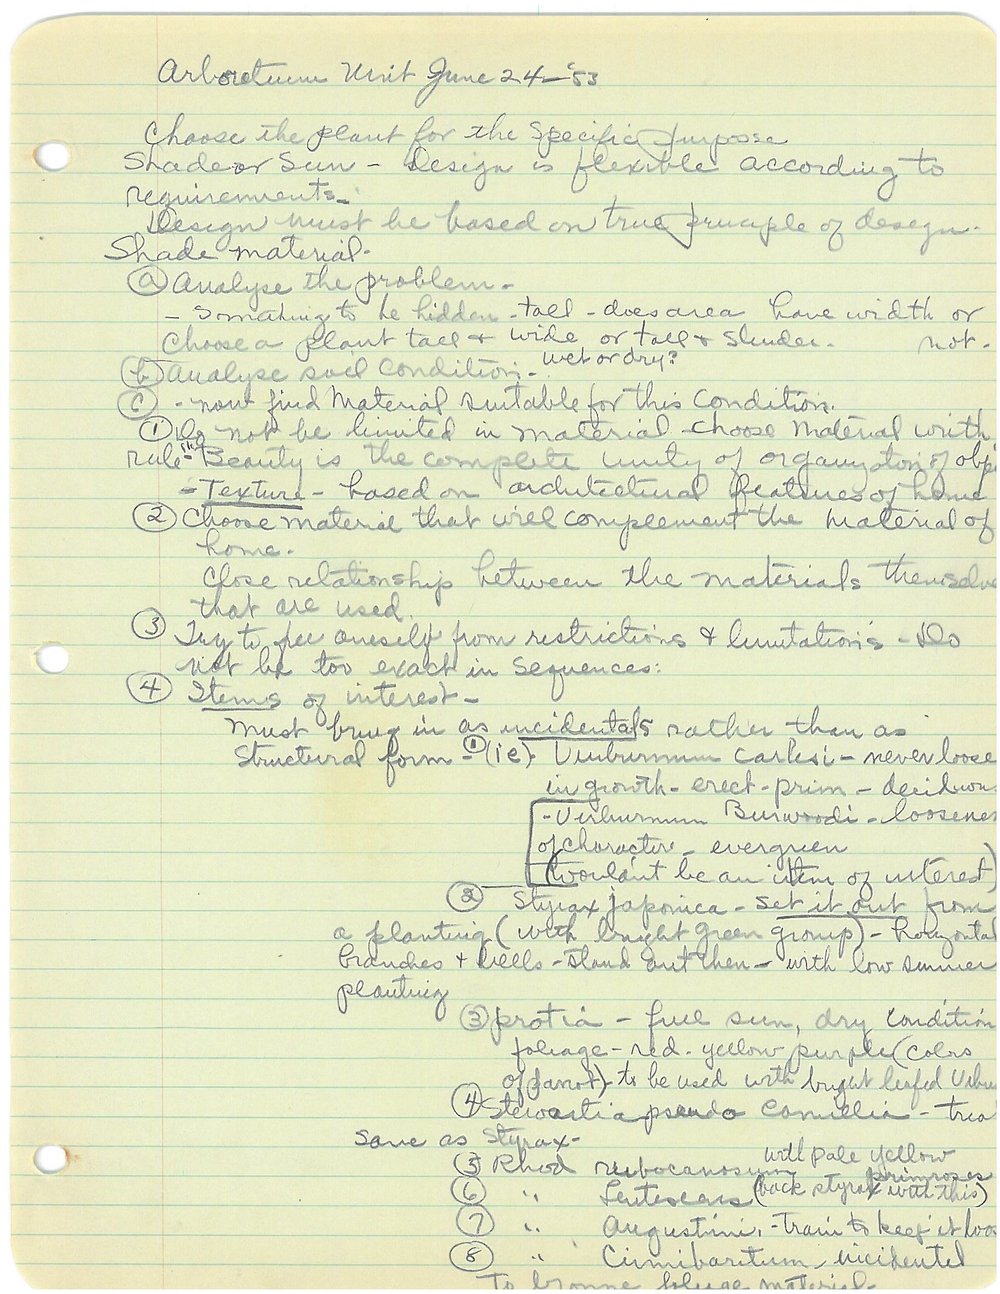 Arboretum Unit June 24-'53
Choose the plant for the Specific purpose
Shade or Sun - Design is flexible according to
requirements-
Design must be based on true principle of design.
Shade material-
(a) Analyse the problem-
- Something to be hidden - tall - does area have width or
Choose a plant tall + wide or tall + slender. not.
(b) Analyse soil condition - wet or dry?
(c) - now find Material suitable for this Condition.
(1) Do not be limited in material - choose material with
rule - "Beauty is the complete unity of organization of obj
- Texture - based on architectural features of home
(2) Choose material that will complement the material of
home.
Close relationship between the materials themselve
that are used.
(3) Try to free oneself from restrictions & limitations - Do
not be too exact in sequences:
(4) Items of interest -
Must bring in as incidentals rather than as
structural form - (1) (ie) Viburnum carlesi - never loose
in growth - erect - prim - deciduous
- Viburnum Burwoodi - loosenes
of character - evergreen
(wouldn't be an item of interest)
(2) Styrax japonica - set it out from
a planting (with bright green group) - horizontal
branches + bells - stand out then - with low summer
planting
(3) protia - full sun, dry condition
foliage - red - yellow purple (colors
of parrot) - to be used with bright leafed Vibu
(4) Stewartia pseudo Camellia - treat
same as Styrax -
(5) Rhod rubocanosum with pale yellow
primroses
(6) " Lutescens (back styrax with this)
(7) " Augustini - train to keep it loos
(8) " Cinnibaritum, incidental
To bronze foliage material-